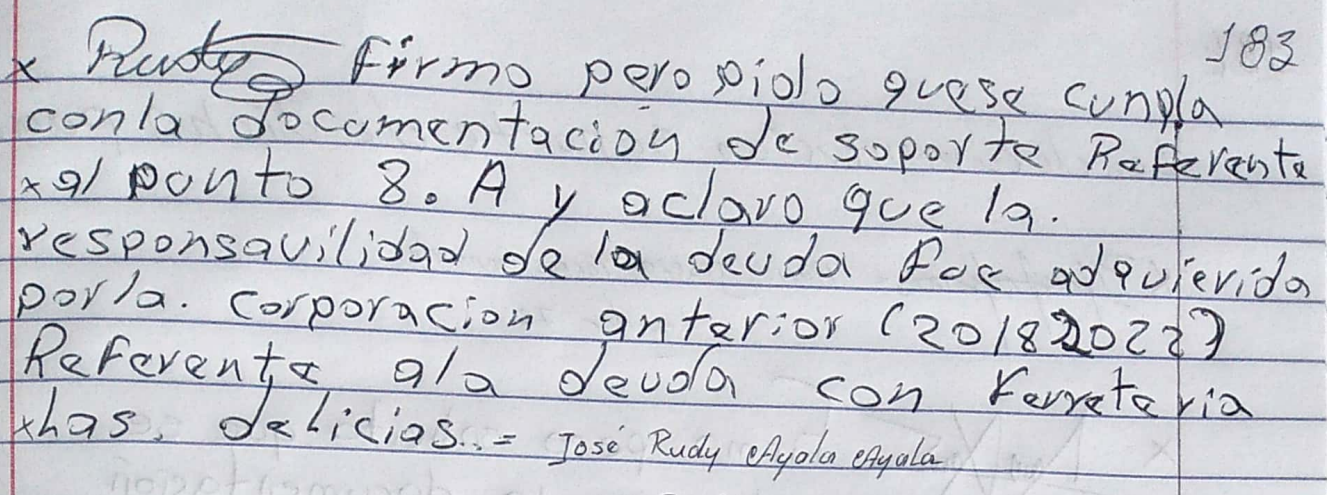 183
x Rudy Firmo pero pido quese cunpla
conla documentación de soporte Referente
x al punto 8. A y aclaro que la.
responsavilidad de la deuda fue adquierida
por la. corporacion anterior (2018 2022)
Referente ala deuda con Ferreteria
x Las. delicias.= José Rudy Ayala Ayala